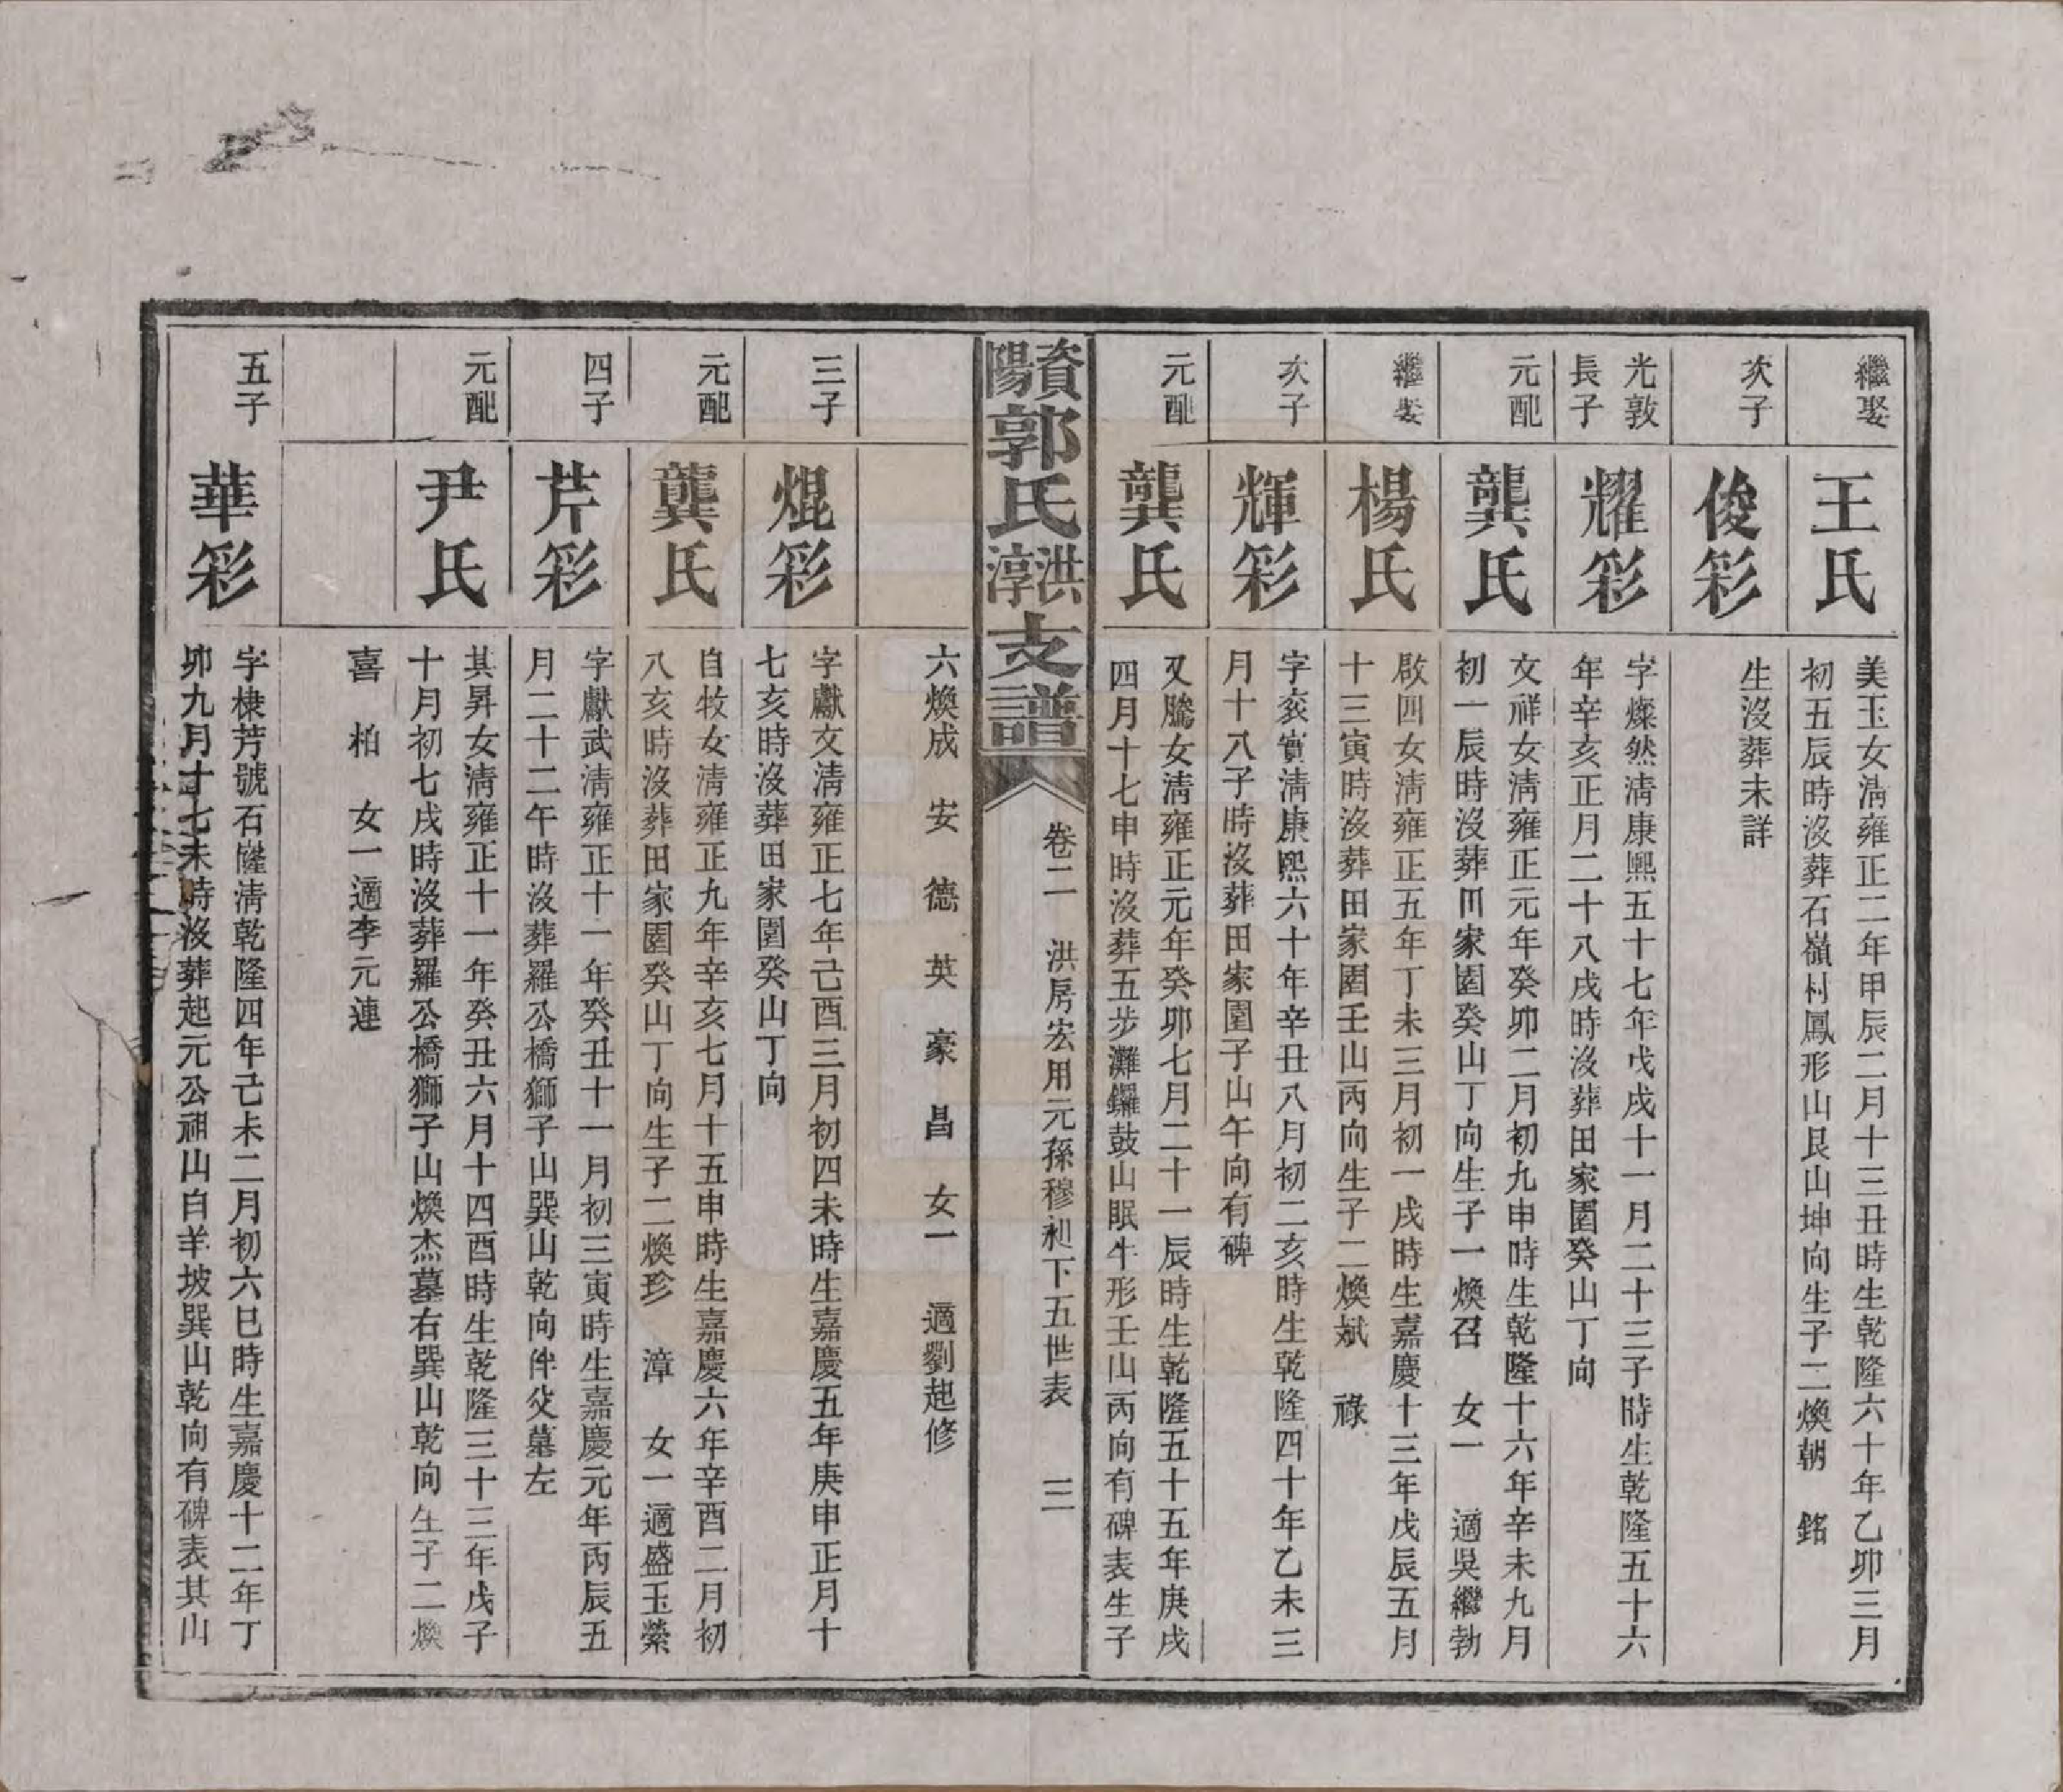 繼娶
王氏
美玉女清雍正二年甲辰二月十三丑時生乾隆六十年乙卯三月
初五辰時沒葬石嶺村鳳形山艮山坤向生子二煥朝　銘
次子
俊彩
生沒葬未詳
光敦
長子
耀彩
字燦然清康熙五十七年戊戌十一月二十三子時生乾隆五十六
年辛亥正月二十八戌時沒葬田家園癸山丁向
元配
龔氏
文祥女清雍正元年癸卯二月初九申時生乾隆十六年辛未九月
初一辰時沒葬田家園癸山丁向生子一煥召　女一　適吳繼勃
繼娶
楊氏
啟四女清雍正五年丁未三月初一戌時生嘉慶十三年戊辰五月
十三寅時沒葬田家園壬山丙向生子二煥斌　祿
次子
輝彩
字亥實清康熙六十年辛丑八月初二亥時生乾隆四十年乙未三
月十八子時沒葬田家園子山午向有碑
元配
龔氏
又騰女清雍正元年癸卯七月二十一辰時生乾隆五十五年庚戌
四月十七申時沒葬五步灘鑼鼓山眠牛形壬山丙向有碑表生子
資陽郭氏洪淳支譜
卷二　洪房宏用元孫穆昶下五世表　三
六煥成　安　德　英　豪　昌　女一　適劉起修
三子
焜彩
字獻文清雍正七年己酉三月初四未時生嘉慶五年庚申正月十
七亥時沒葬田家園癸山丁向
元配
龔氏
自牧女清雍正九年辛亥七月十五申時生嘉慶六年辛酉二月初
八亥時沒葬田家園癸山丁向生子二煥珍　漳　女一適盛玉縈
四子
芹彩
字獻武清雍正十一年癸丑十一月初三寅時生嘉慶元年丙辰五
月二十二午時沒葬羅公橋獅子山巽山乾向伴父墓左
元配
尹氏
其昇女清雍正十一年癸丑六月十四酉時生乾隆三十三年戊子
十月初七戌時沒葬羅公橋獅子山煥杰墓右巽山乾向生子二煥
喜　柏　女一適李元連
五子
華彩
字棣芳號石㠥清乾隆四年己未二月初六巳時生嘉慶十二年丁
卯九月十七未時沒葬起元公祖山白羊坡巽山乾向有碑表其山